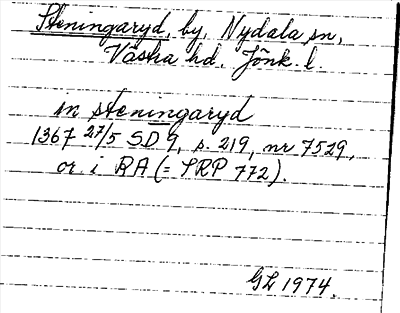 Steningaryd, by, Nydala sn,
Västra hd. Jönk. l.
in steningaryd
1367 27/5 SD 9, s. 219, nr 7529,
or. i RA (= SRP 772).
GL 1974.